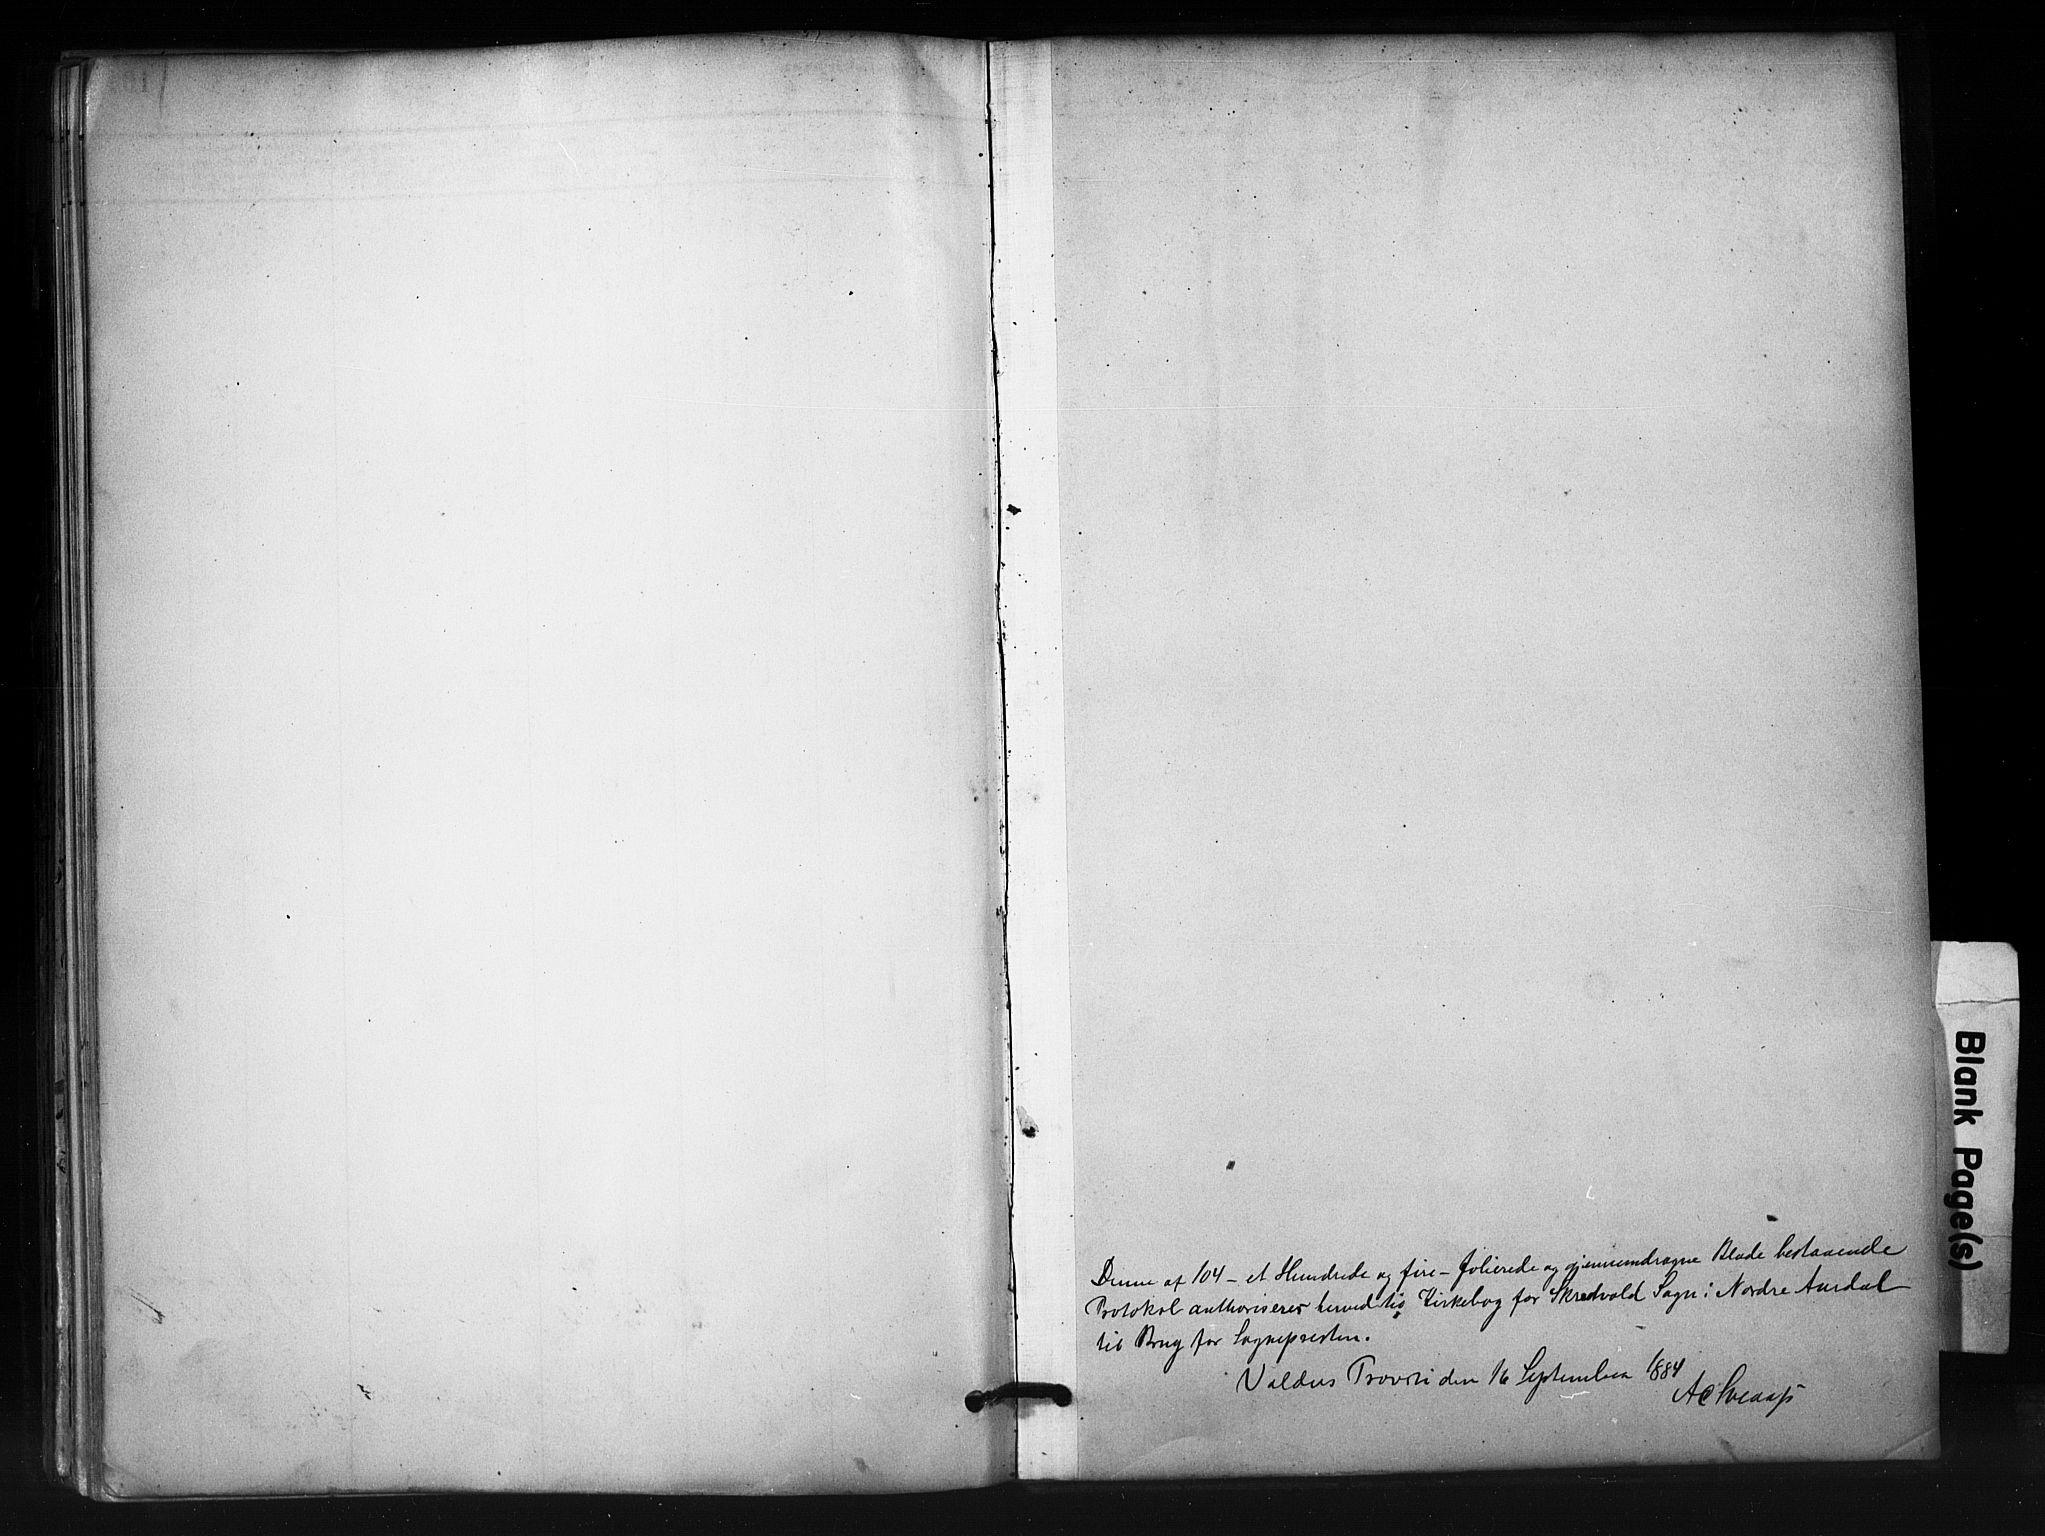 Denne af 104 – et Hundrede og fire – folierede og gjennemdragne Blade bestaaende
Protokol authoriseres herved til Kirkebog for Skrutvold Sogn i Nordre Aurdal
til Brug for Sognepresten.
Valders Provsti den 16 September 1884
Blank Page(s)